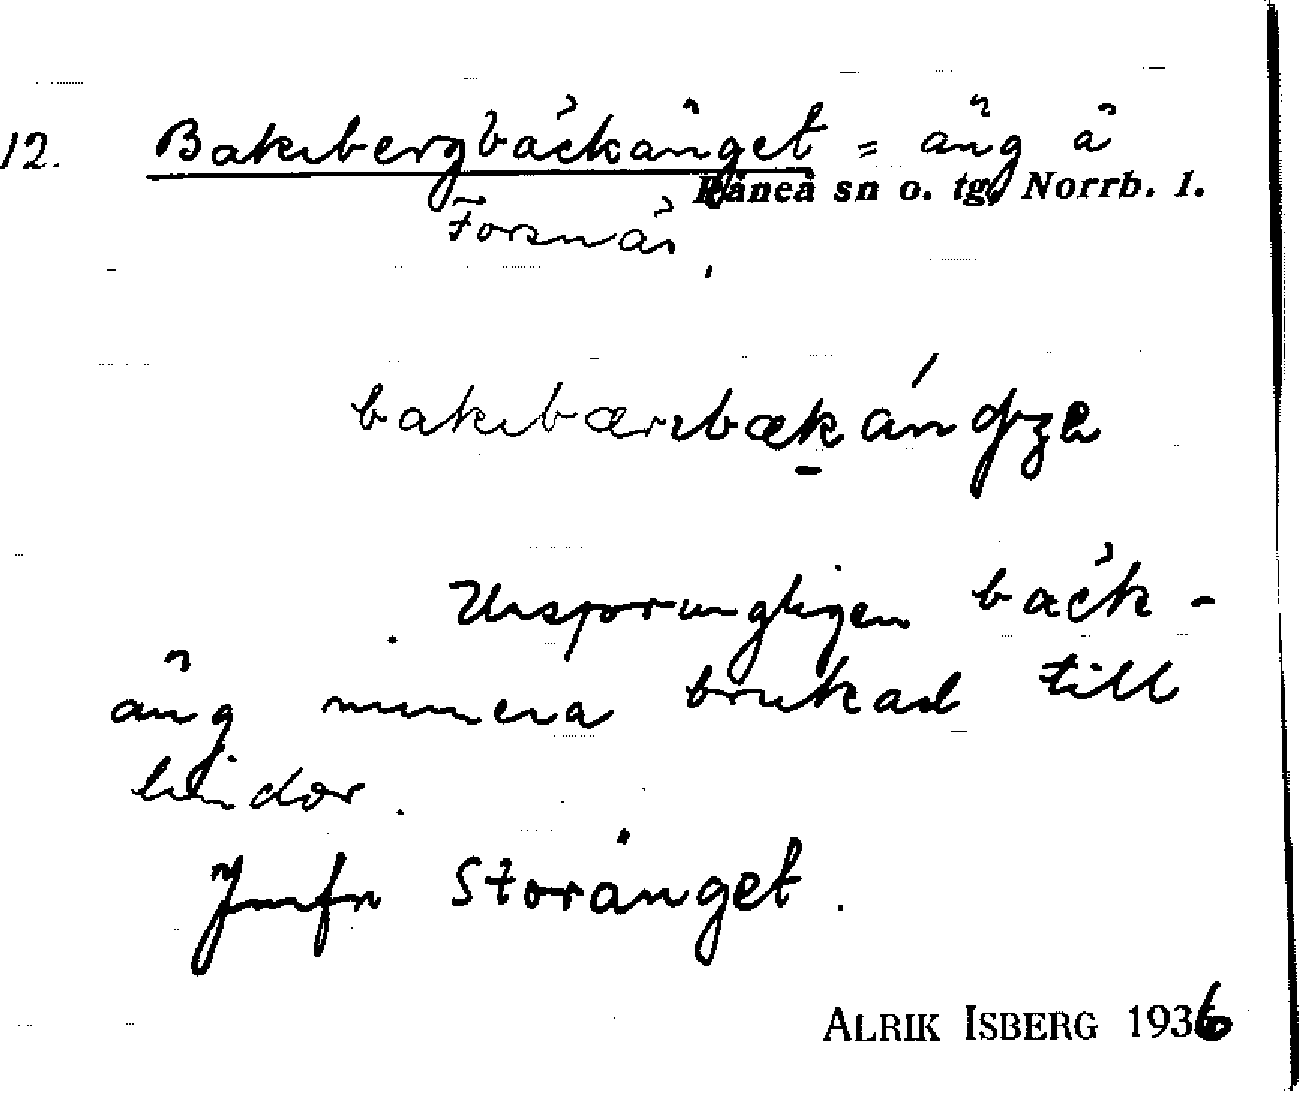 12. Bakibergbäckänget = äng å
Råneå sn o. tg, Norrb. l.
Forsnäs.
Ursprungligen bäck-
äng numera brukad till
lindor.
Jmfr Storänget.
ALRIK ISBERG 1936